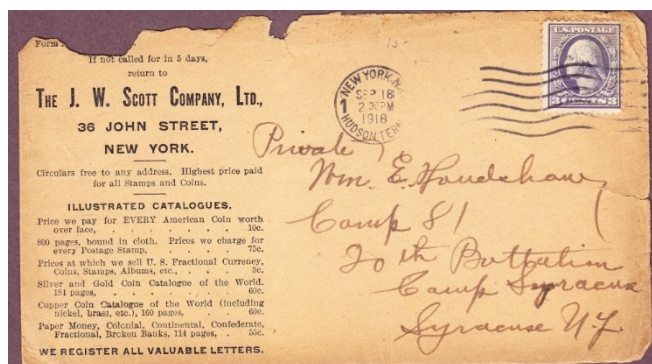 Form
If not called for in 5 days,
return to
THE J. W. SCOTT COMPANY, LTD.,
36 JOHN STREET,
NEW YORK.
Circulars free to any address. Highest price paid
for all Stamps and Coins.
ILLUSTRATED CATALOGUES.
Price we pay for EVERY American Coin worth
over face, . . . . . . 10c.
800 pages, bound in cloth. Prices we charge for
every Postage Stamp, . . . . 75c.
Prices at which we sell U. S. Fractional Currency,
Coins, Stamps, Albums, etc., . . . . 5c.
Silver and Gold Coin Catalogue of the World.
184 pages, . . . . . . 60c.
Copper Coin Catalogue of the World (including
nickel, brass, etc.), 160 pages, . . . 60c.
Paper Money, Colonial, Continental, Confederate,
Fractional, Broken Banks, 114 pages, . . 55c.
WE REGISTER ALL VALUABLE LETTERS.
NEW YORK, N.Y.
1
SEP 18
2 30 PM
1918
HUDSON TERM
U.S. POSTAGE
3 CENTS 3
Private
Wm. E. Houdshaw
Camp 81
20th Battalion
Camp Syracuse
Syracuse N.Y.